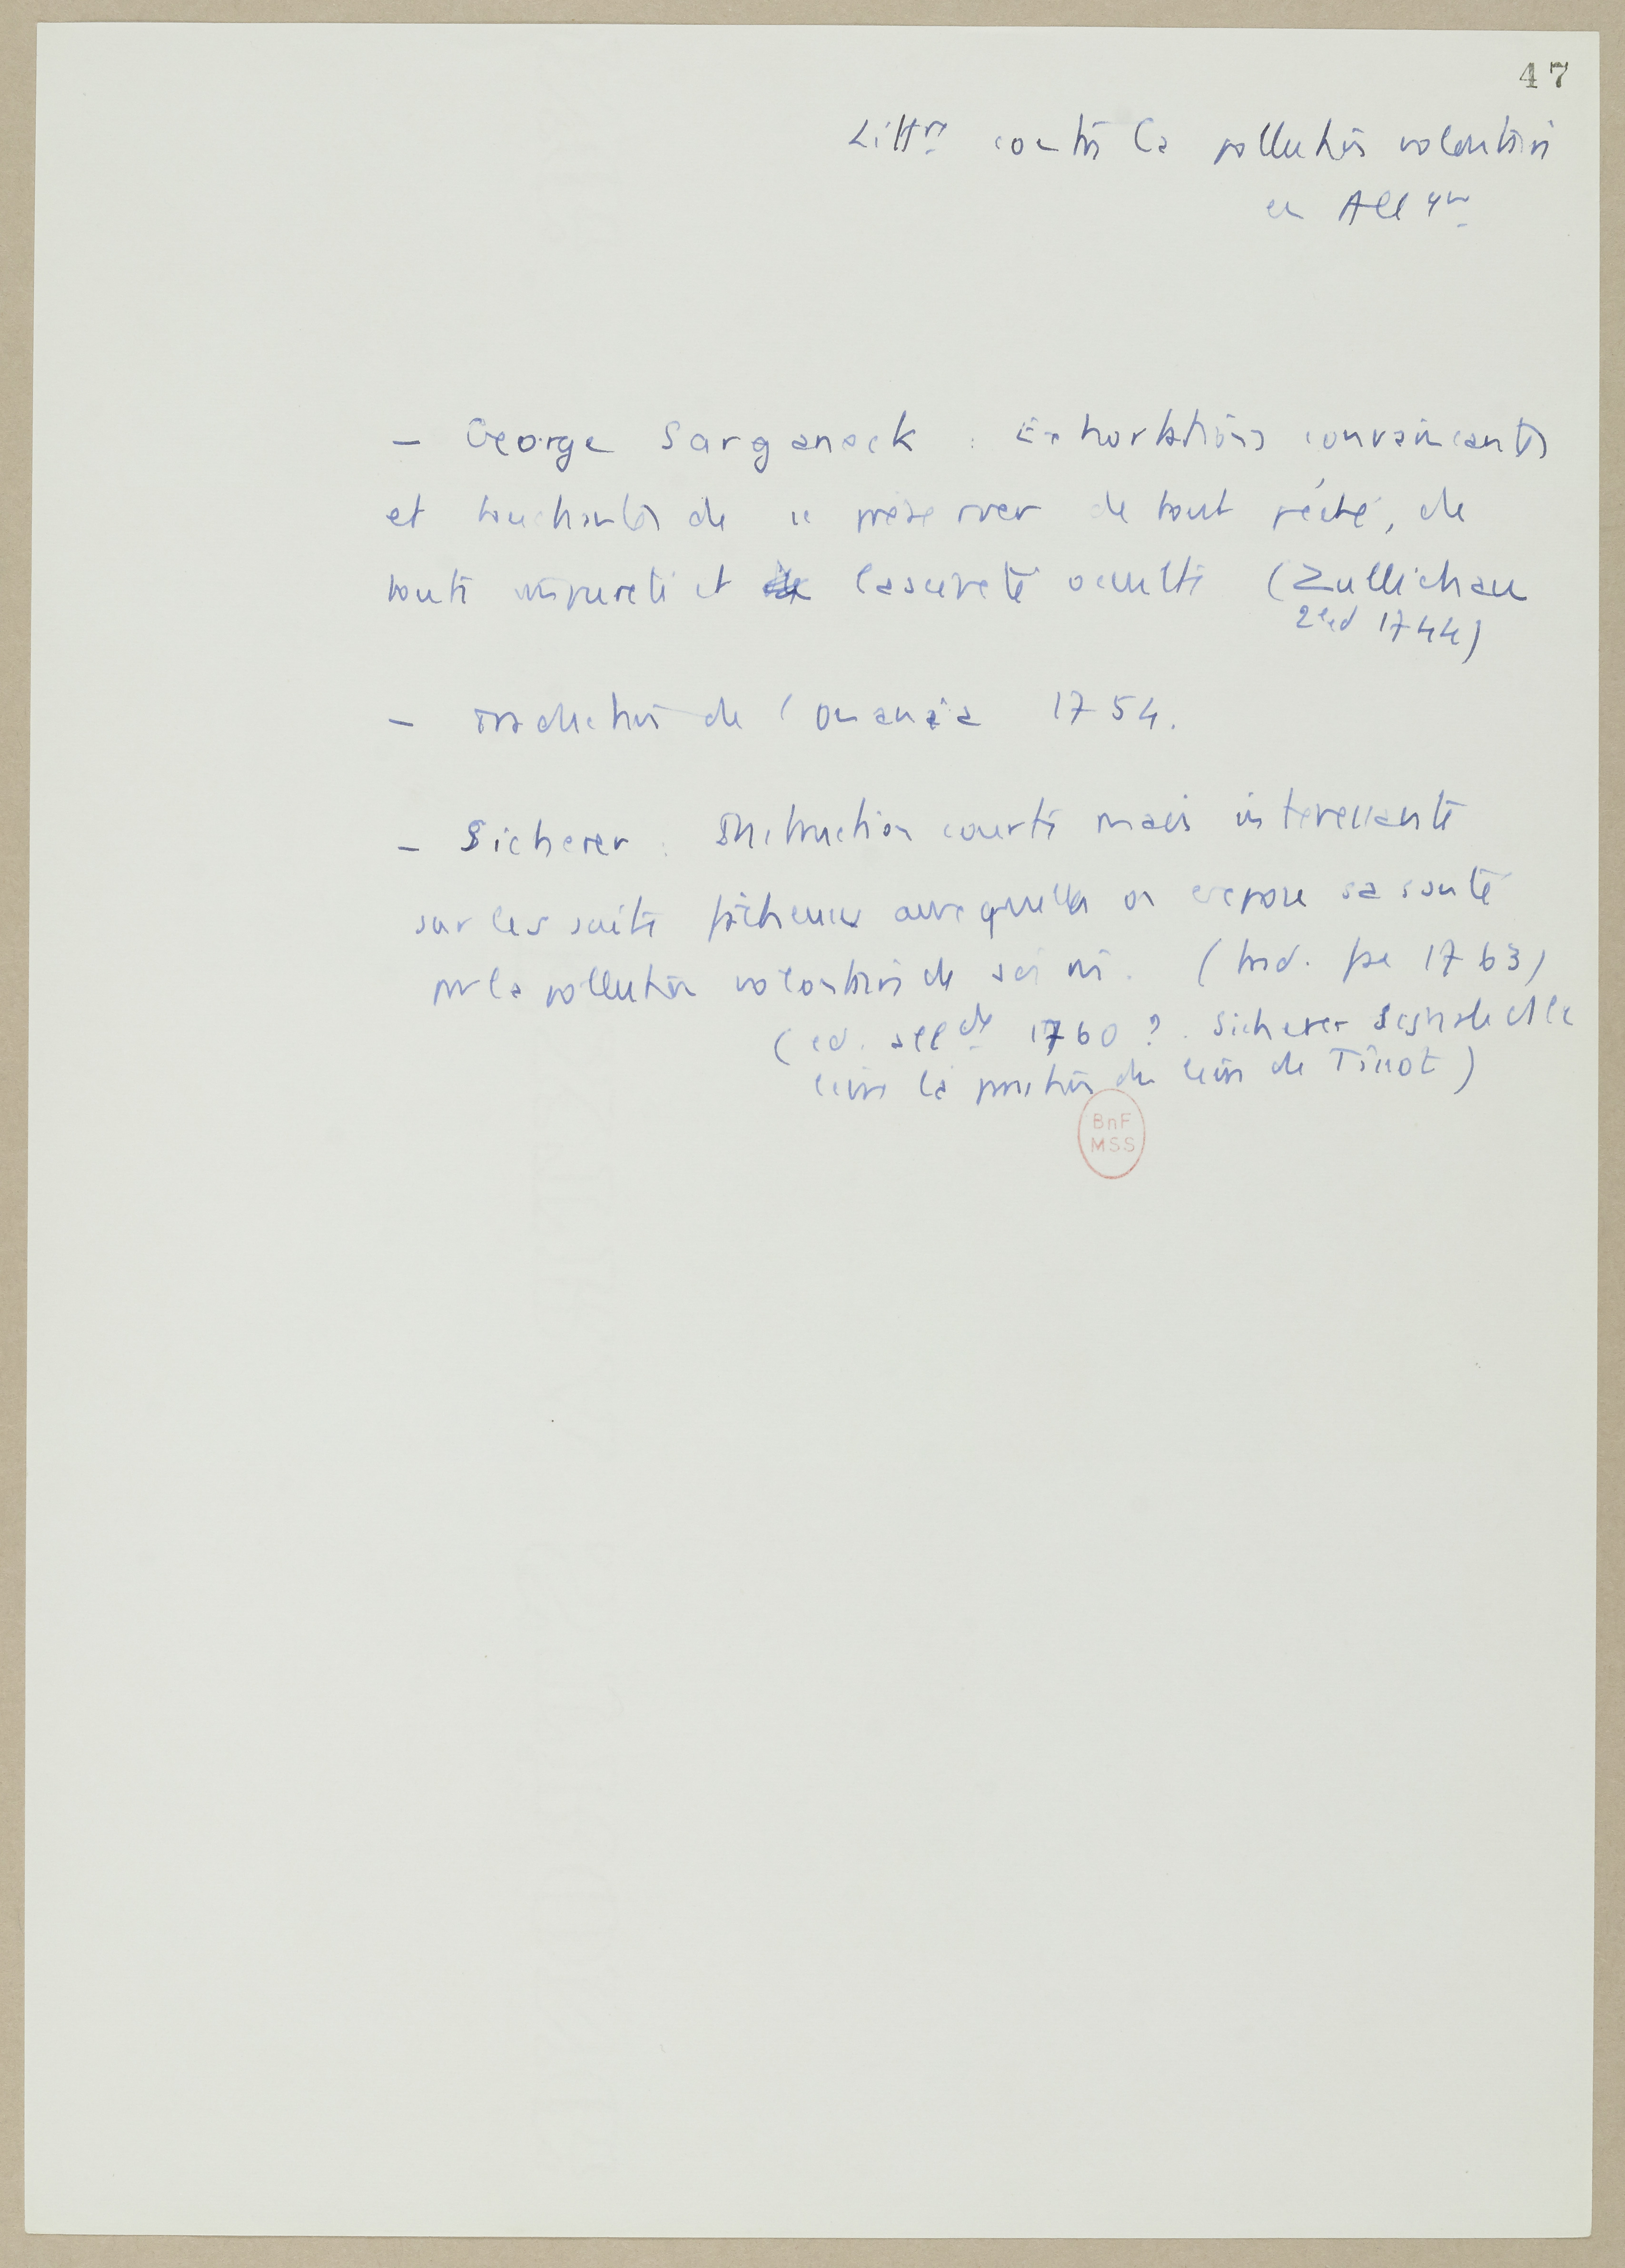 47
Littre contre la pollution volontaire
en Allgne
- George Sarganeck : Exhortations convaincantes
et touchantes de se préserver de tout péché, de
toute impureté et lasciveté occulte (Zullichau
2e ed 1744)
- Traduction de l'Onania 1754.
- Sicherer : Instruction courte mais interessante
sur les suites fâcheuses auxquelles on expose sa santé
par la pollution volontaire de soi m. (trad. fse 1763)
(ed. allde 1760 ? Sicherer signale le
livre la parution du livre de Tissot)
BnF
MSS